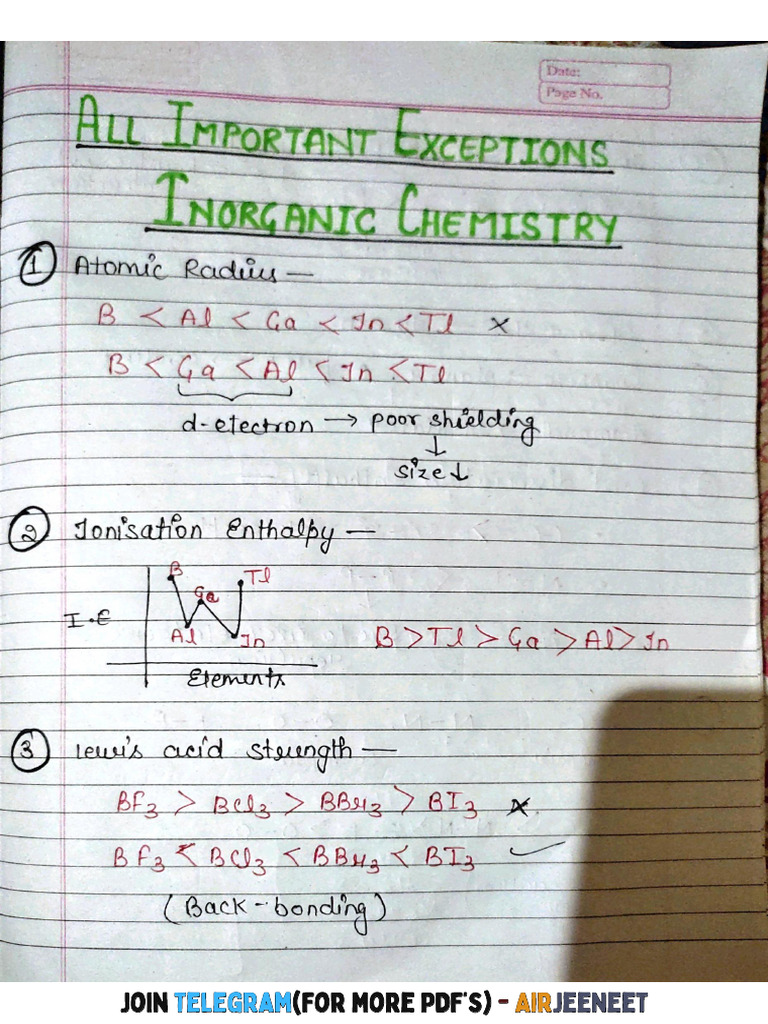 Date:
Page No.
ALL IMPORTANT EXCEPTIONS
INORGANIC CHEMISTRY
① Atomic Radius —
B < Al < Ga < In < Tl ×
B < Ga < Al < In < Tl
d-electron → poor shielding
↓
size↓
② Ionisation Enthalpy —
B
Tl
Ga
I.E
Al
In
B > Tl > Ga > Al > In
Elements
③ Lewis acid strength —
BF3 > BCl3 > BBr3 > BI3 ×
BF3 < BCl3 < BBr3 < BI3 ✓
(Back-bonding)
JOIN TELEGRAM(FOR MORE PDF'S) - AIRJEENEET